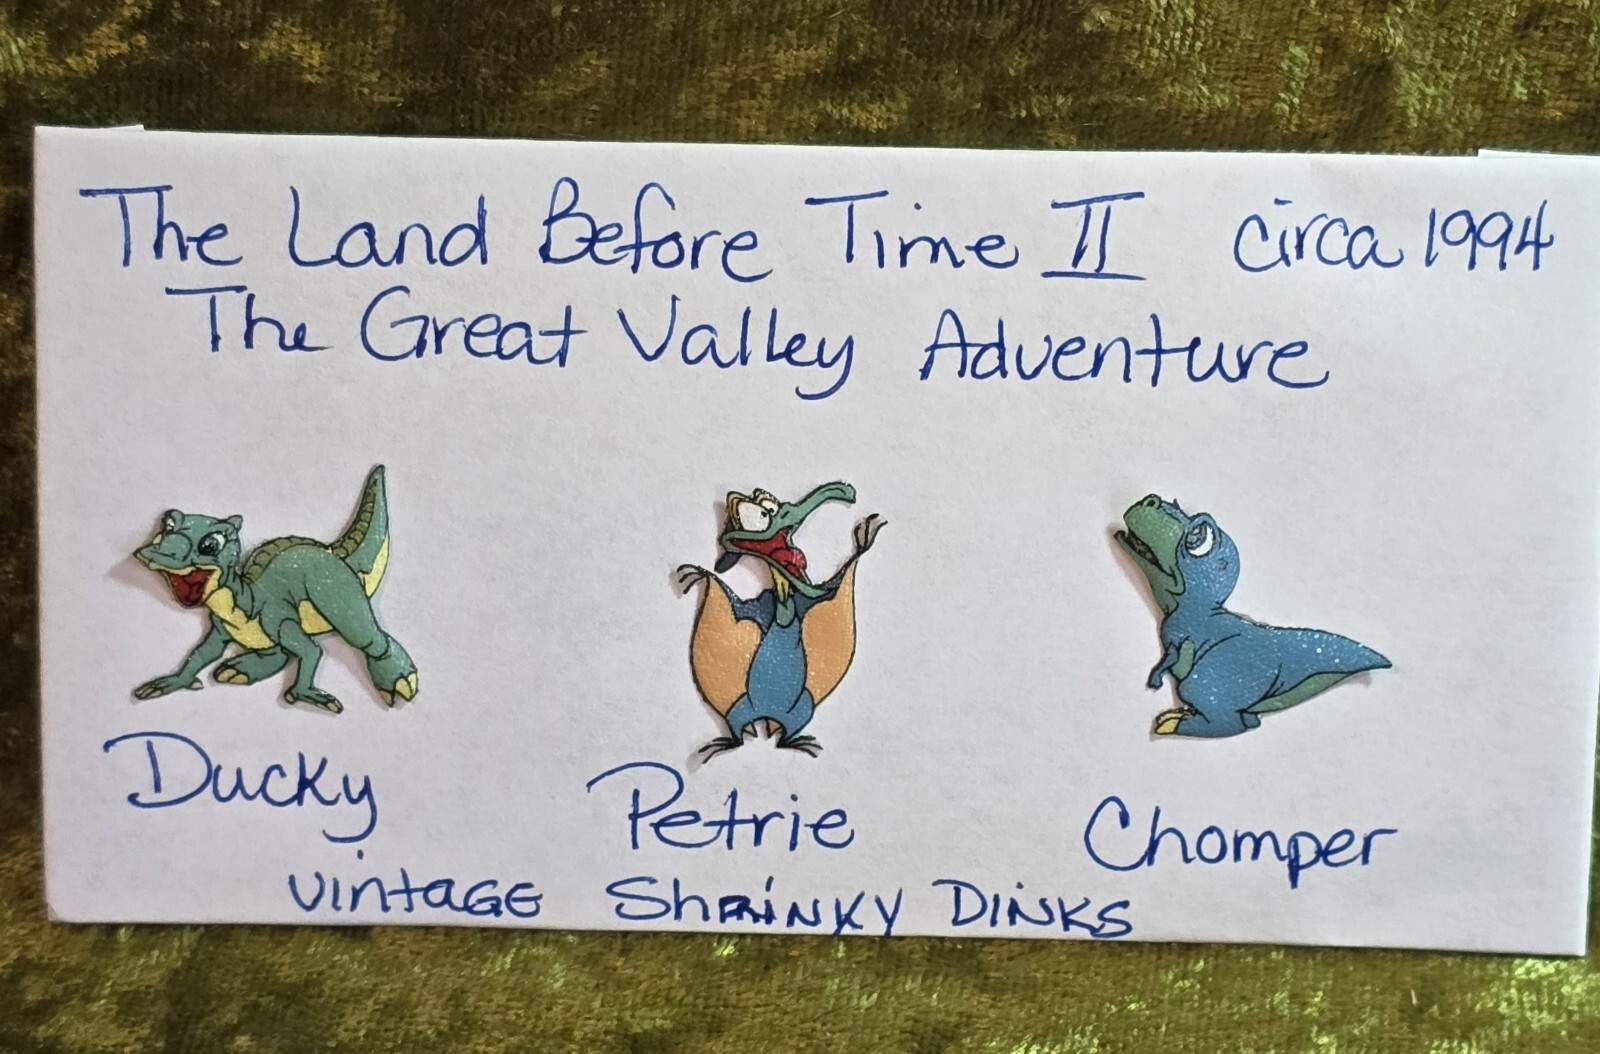 The Land Before Time II circa 1994
The Great Valley Adventure
Ducky Petrie Chomper
vintaGE ShRiNKY DiNKS